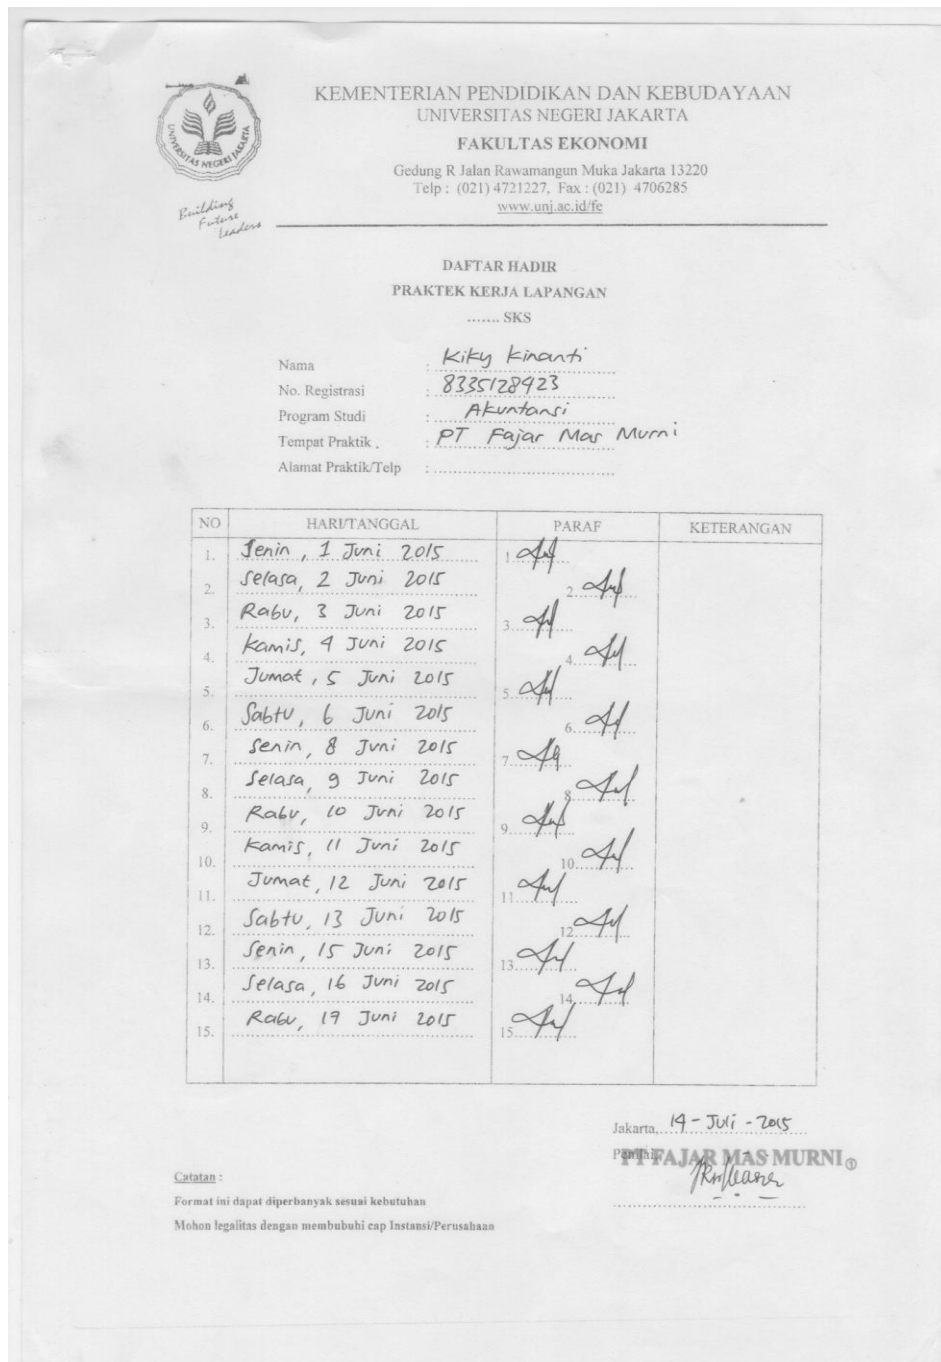 KEMENTERIAN PENDIDIKAN DAN KEBUDAYAAN
UNIVERSITAS NEGERI JAKARTA
FAKULTAS EKONOMI
Gedung R Jalan Rawamangun Muka Jakarta 13220
Telp : (021) 4721227, Fax : (021) 4706285
www.unj.ac.id/fe
UNIVERSITAS NEGERI JAKARTA
Building
Future
Leaders
DAFTAR HADIR
PRAKTEK KERJA LAPANGAN
....... SKS
Nama : Kiky Kinanti
No. Registrasi : 8335128423
Program Studi : Akuntansi
Tempat Praktik : PT Fajar Mas Murni
Alamat Praktik/Telp :
NO HARI/TANGGAL PARAF KETERANGAN
1. Senin, 1 Juni 2015 1
2. Selasa, 2 Juni 2015 2
3. Rabu, 3 Juni 2015 3
4. Kamis, 4 Juni 2015 4
5. Jumat, 5 Juni 2015 5
6. Sabtu, 6 Juni 2015 6
7. Senin, 8 Juni 2015 7
8. Selasa, 9 Juni 2015 8
9. Rabu, 10 Juni 2015 9
10. Kamis, 11 Juni 2015 10
11. Jumat, 12 Juni 2015 11
12. Sabtu, 13 Juni 2015 12
13. Senin, 15 Juni 2015 13
14. Selasa, 16 Juni 2015 14
15. Rabu, 17 Juni 2015 15
Jakarta, 14 - Juli - 2015
Penilai,
PT FAJAR MAS MURNI
Catatan :
Format ini dapat diperbanyak sesuai kebutuhan
Mohon legalitas dengan membubuhi cap Instansi/Perusahaan